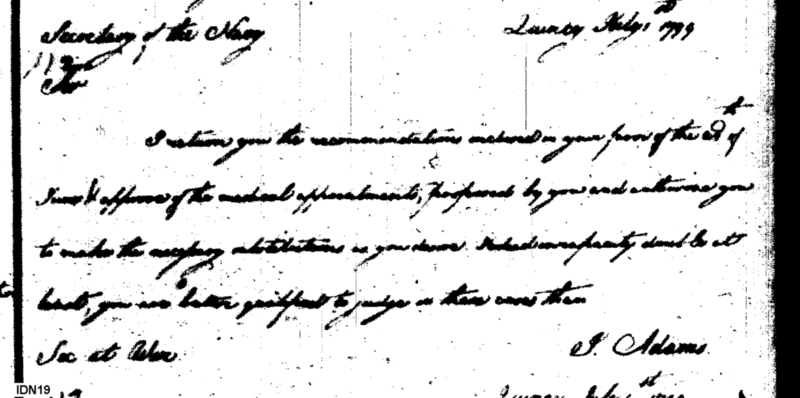 Secretary of the Navy
Quincy July 1st 1799
Sir
I return you the recommendations inclosed in your favor of the of
June & approve of the medical appointments, proposed by you and authorize you
to make the necessary substitutions as you desire. Indeed incapacity must be at
least, you are better qualified to judge in these cases than
J. Adams
Sec at War
IDN19
Quincy July 1st